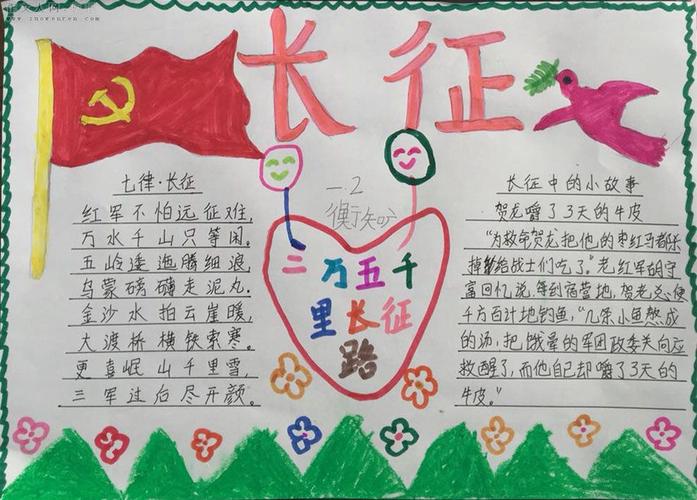 长征
七律·长征
红军不怕远征难,
万水千山只等闲。
五岭逶迤腾细浪,
乌蒙磅礴走泥丸。
金沙水拍云崖暖,
大渡桥横铁索寒。
更喜岷山千里雪,
三军过后尽开颜。
一.2
二万五千
里长征
路
长征中的小故事
贺龙嚼了3天的牛皮
“为救命贺龙把他的枣红马都杀
掉给战士们吃了”老红军胡守
富回忆说,每到宿营地,贺老总便
千方百计地钓鱼,“几条小鱼熬成
的汤,把饿晕的军团政委关向应
救醒了,而他自己却嚼了3天的
牛皮。”